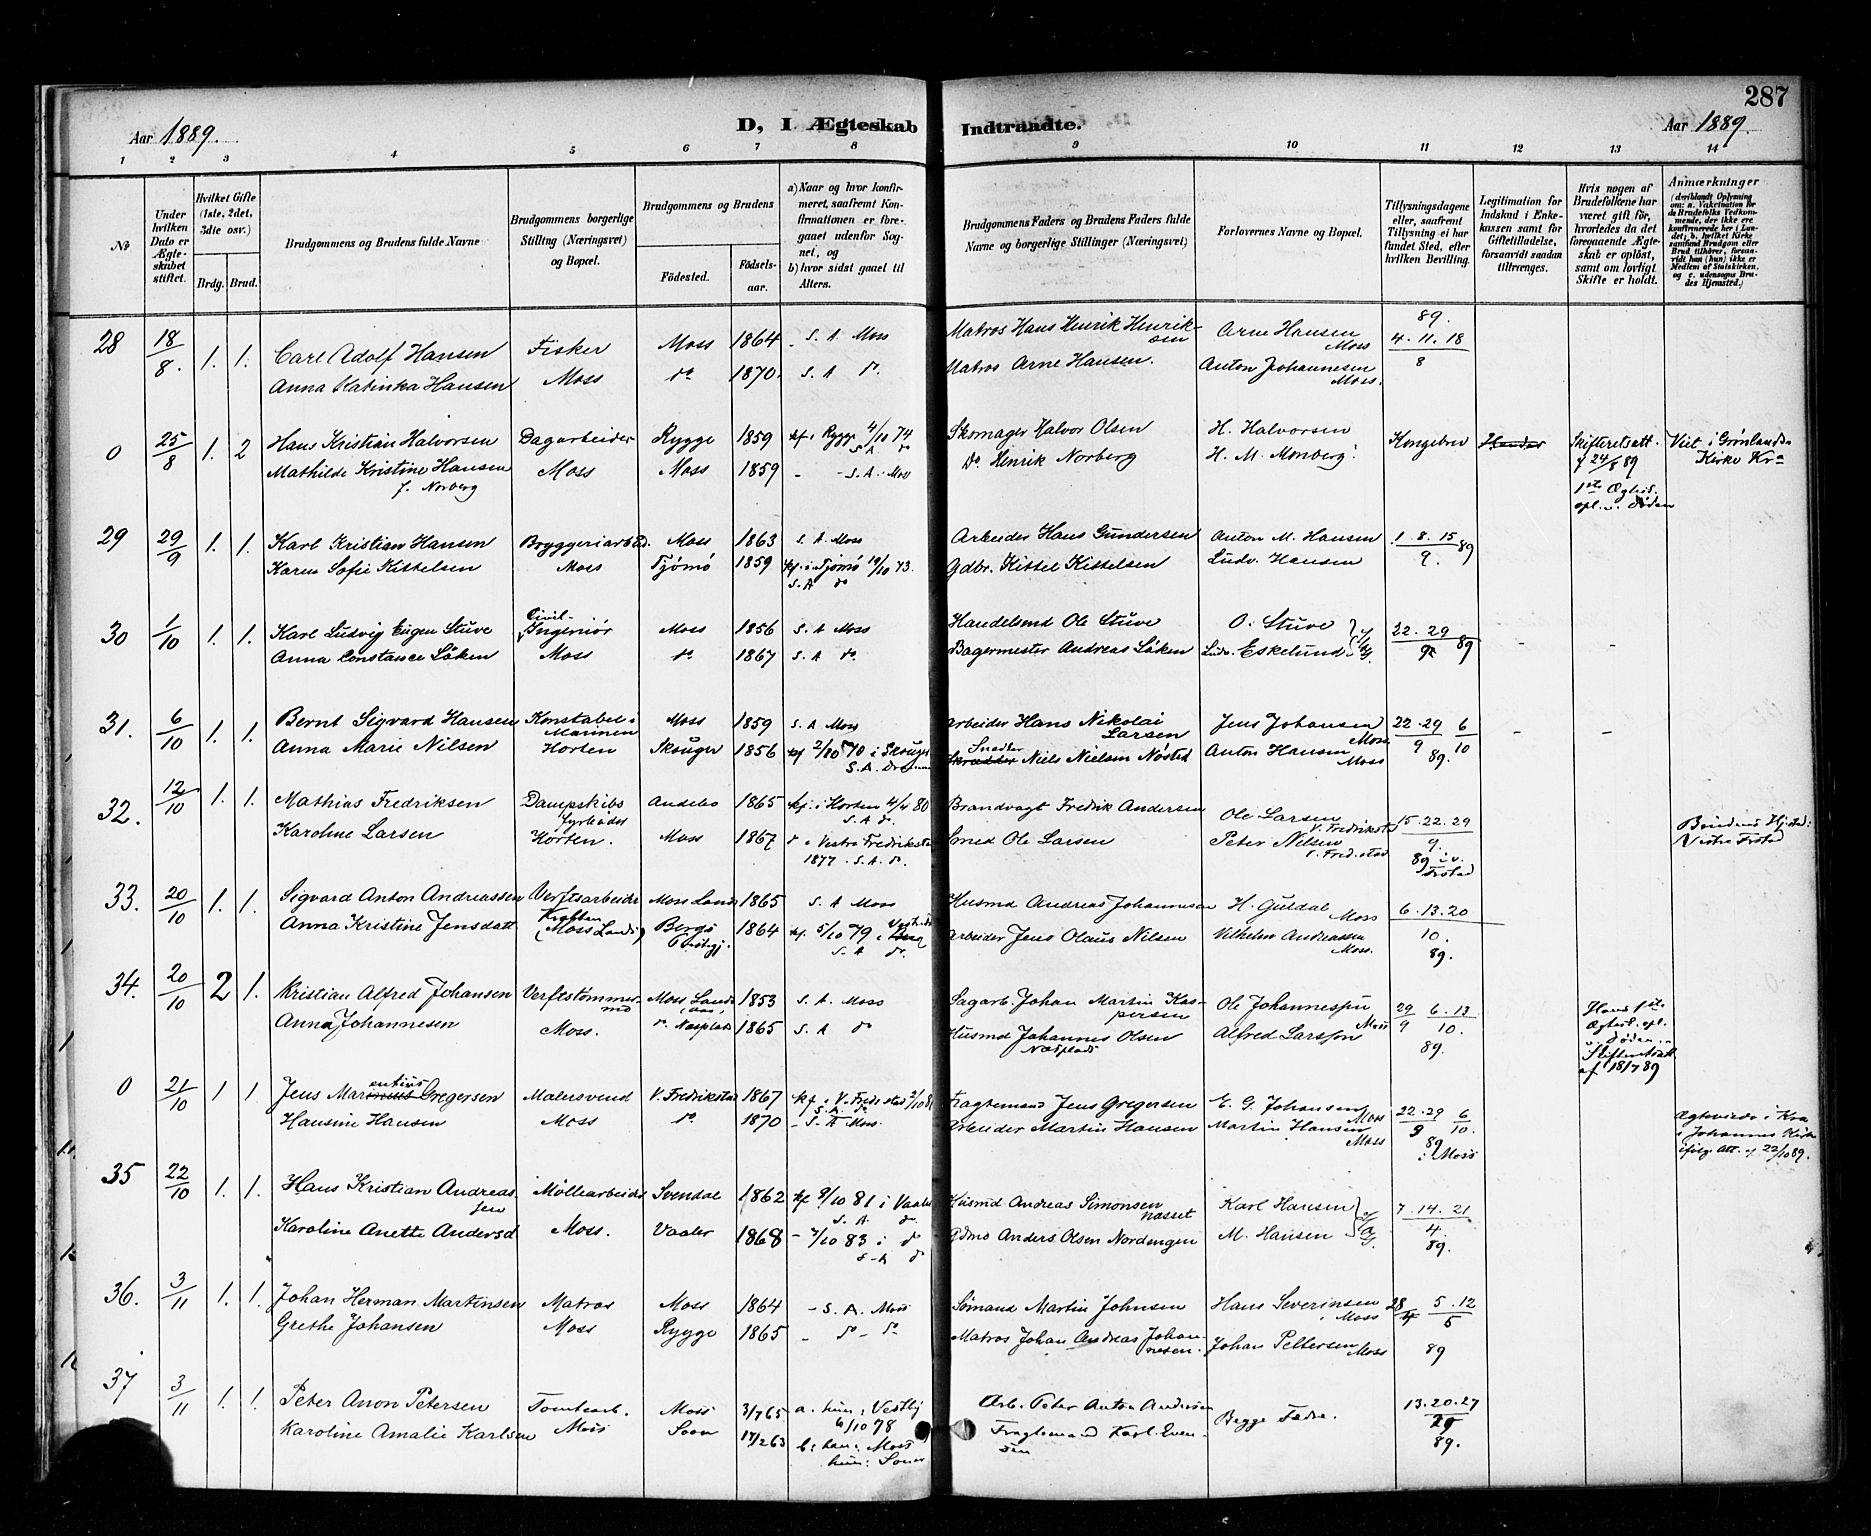 287
Aar 1889.
D, I Ægteskab Indtraadte.
Aar 1889.
1 2 3 4 5 6 7 8 9 10 11 12 13 14
No
Under hvilken Dato er Ægteskabet stiftet.
Hvilket Gifte (1ste, 2det, 3die osv.)
Brdg. Brud.
Brudgommens og Brudens fulde Navne
Brudgommens borgerlige Stilling (Næringsvei) og Bopæl.
Brudgommens og Brudens
Fødested.
Fødselsaar.
a) Naar og hvor konfirmeret, saafremt Konfirmationen er foregaaet udenfor Sognet, og
b) hvor sidst gaaet til Alters.
Brudgommens Faders og Brudens Faders fulde Navne og borgerlige Stillinger (Næringsvei)
Forlovernes Navne og Bopæl.
Tillysningsdagene eller, saafremt Tillysning ei har fundet Sted, efter hvilken Bevilling.
Legitimation for Indskud i Enkekassen samt for Giftetilladelse, forsaavidt saadan tiltrænges.
Hvis nogen af Brudefolkene har været gift før, hvorledes da det foregaaende Ægteskab er opløst, samt om lovligt Skifte er holdt.
Anmærkninger
(deriblandt Oplysning om: a. Vakcination for de Brudefolks Vedkommende, der ikke ere konfirmerede her i Landet; b. hvilket Kirkesamfund Brudgom eller Brud tilhører, forsaavidt han (hun) ikke er Medlem af Statskirken, og c. udensogns Brudes Hjemsted.)
28 18/8. 1. 1. Carl Adolf Hansen Fisker Moss 1864 - S. A. Moss Matros Hans Henrik Henriksen Arne Hansen Moss 89. 4. 11. 18
Anna Katinka Hansen Moss do 1870. S. A do. Matros Arne Hansen. Anton Johannesen Moss. 8
0 25/8 1. 2 Hans Kristian Halvorsen Dagarbeider Rygge 1859 kf. i Rygge 4/10 74 S A do Skomager Halvor Olsen H. Halvorsen Kongebrev Skifteretsatt. f 24/8 89 Viet i Grønlands Kirke Kra
Mathilde Kristine Hansen f. Norberg Moss Moss 1859 - - S. A. Moss Do. Henrik Norberg H. M. Monberg. 1ste Ægtesk. opl. v. Døden
29 29/9 1. 1. Karl Kristian Hansen Bryggeriarbeid. Moss 1863 S. A. Moss Arbeider Hans Gundersen Anton M. Hansen 1. 8. 15/9. 89
Karen Sofie Kittelsen Moss Tjømø 1859 kf. i Tjømø 19/10 73. S. A do Gdbr. Kittel Kittelsen Ludv. Hansen
30 1/10 1. 1. Karl Ludvig Eugen Stuve Civil-Ingeniør Moss 1856 S. A Moss Handelsmd Ole Stuve O. Stuve 22. 29/9 89 - -
Anna Constance Løken Moss do 1867 S. A do. Bagermester Andreas Løken Ludv. Eskelund
31. 6/10 1. 1. Bernt Sigvard Hansen Konstabel i Marinen Moss 1859 S. A Moss Arbeider Hans Nikolai Larsen Jens Johansen Moss 22. 29/9 6/10 - -
Anna Marie Nilsen Horten Skouger 1856 kf 2/10 70 i Skouger S. A. Snedker Niels Nielsen Nøsted Anton Hansen Moss 89.
32. 12/10 1. 1. Mathias Fredriksen Dampskibs fyrbøder Andebo 1865 kf. i Horten 4/4 80 S A do. Brandvagt Fredrik Andersen Ole Larsen V. Fredrikstad 15. 22. 29
Karoline Larsen Horten. Moss 1867 do i Vestre Fredrikstad 1877. S. A. do. Smed Ole Larsen Peter Nilsen V. Fred.stad 9. 89 i v. Frstad Brudens Hjsted: Vestre Frstad
33. 20/10 1. 1. Sigvard Anton Andreassen Verftsarbeider Moss Lands 1865 S. A Moss Husmd Andreas Johannesen H. Guldal Moss 6. 13. 20
Anna Kristine Jensdatt Moss Landsg Berg 1864 kf. 5/10 79 i S. A do. Arbeider Jens Olaus Nilsen Vilhelm Andreassen Moss. 10. 89.
34. 20/10 2 1. Kristian Alfred Johansen Verftstømmermd Moss Lands 1853 S. A. Moss Sagarb. Johan Martin Kaspersen Ole Johannessen Moss 29/9 6. 13/10. Hans 1ste Ægtesk. opl. v. Døden. Skifteretsatt. af 18/7 89
Anna Johannesen Moss. do. Næsplads 1865 S. A do Husmd Johannes Olsen Næsplads Alfred Larsson 89.
0 21/10 1 1 Jens Marentius Gregersen Malersvend V. Fredrikstad 1867 kf. i V. Fredrstad 2/10 81 S. A. do. Fragtemand Jens Gregersen E. G. Johansen Moss 22. 29/9 6/10.
Hansine Hansen Moss do 1870 - S. A Moss. Arbeider Martin Hansen Martin Hansen Moss 89 i Moss Ægteviede i Kra i Johannes Kirke ifølg Att. af 22/10 89.
35 22/10 1. 1. Hans Kristian Andreassen Møllearbeider Svendal 1862 kf 9/10 81 i Vaaler S. A. do. Husmd Andreas Simonsen Karl Hansen 7. 14. 21
Karoline Anette Andersd Moss. Vaaler 1868 - 7/10 83 i do S-A do Gdmd Anders Olsen Nordengen M. Hansen 4. 89.
36. 3/11 1. 1. Johan Herman Martinsen Matros Moss 1864 - S. A. Moss Sømand Martin Johnsen Hans Severinsen i Moss 28/4 5. 12/5
Grethe Johansen Moss Rygge 1865 - do - do Matros Johan Andreas Johannesen. Johan Pettersen Moss 89
37 3/11 1. 1. Peter Anon Petersen Tomtearb. Moss 3/7 65 a. hun: Vestby 6/10 78 Arb. Peter Anton Andersen Begge Fædre. 13. 20. 27
Karoline Amalie Karlsen Moss Soon 17/2 63 b: han: Moss hun: Soner Fragtemand Karl Evensen 10 89.